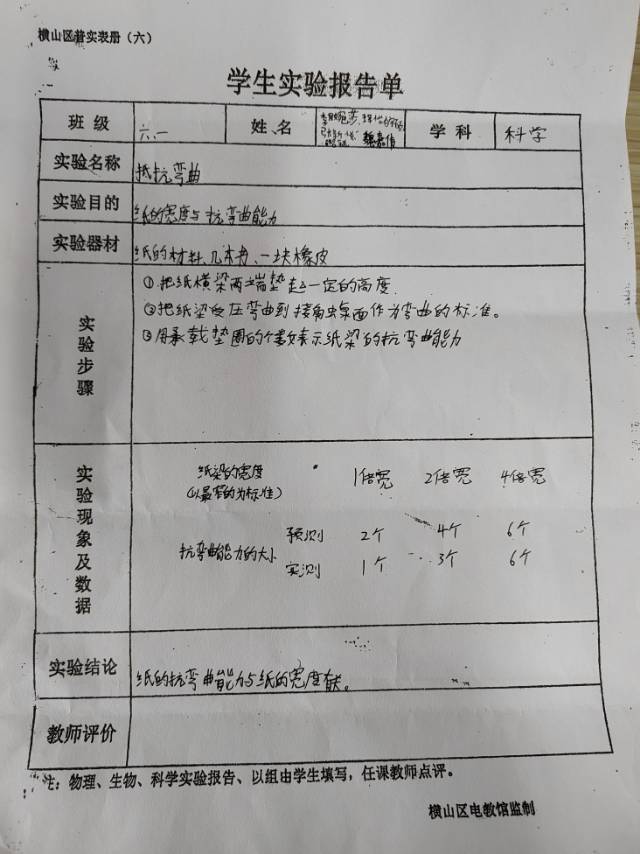 横山区普实表册（六）
学生实验报告单
班级 六、一 姓名 学科 科学
实验名称 抵抗弯曲
实验目的 纸的宽度与抗弯曲能力
实验器材 纸的材料、几本书、一块橡皮
实验步骤
①把纸横梁两端垫起一定的高度
②把纸梁受压弯曲到接触桌面作为弯曲的标准。
③用承载垫圈的个数表示纸梁的抗弯曲能力
实验现象及数据
纸梁的宽度 1倍宽 2倍宽 4倍宽
(以最窄的为标准)
预测 2个 4个 6个
抗弯曲能力的大小
实测 1个 3个 6个
实验结论 纸的抗弯曲能力与纸的宽度有关。
教师评价
注：物理、生物、科学实验报告、以组由学生填写，任课教师点评。
横山区电教馆监制